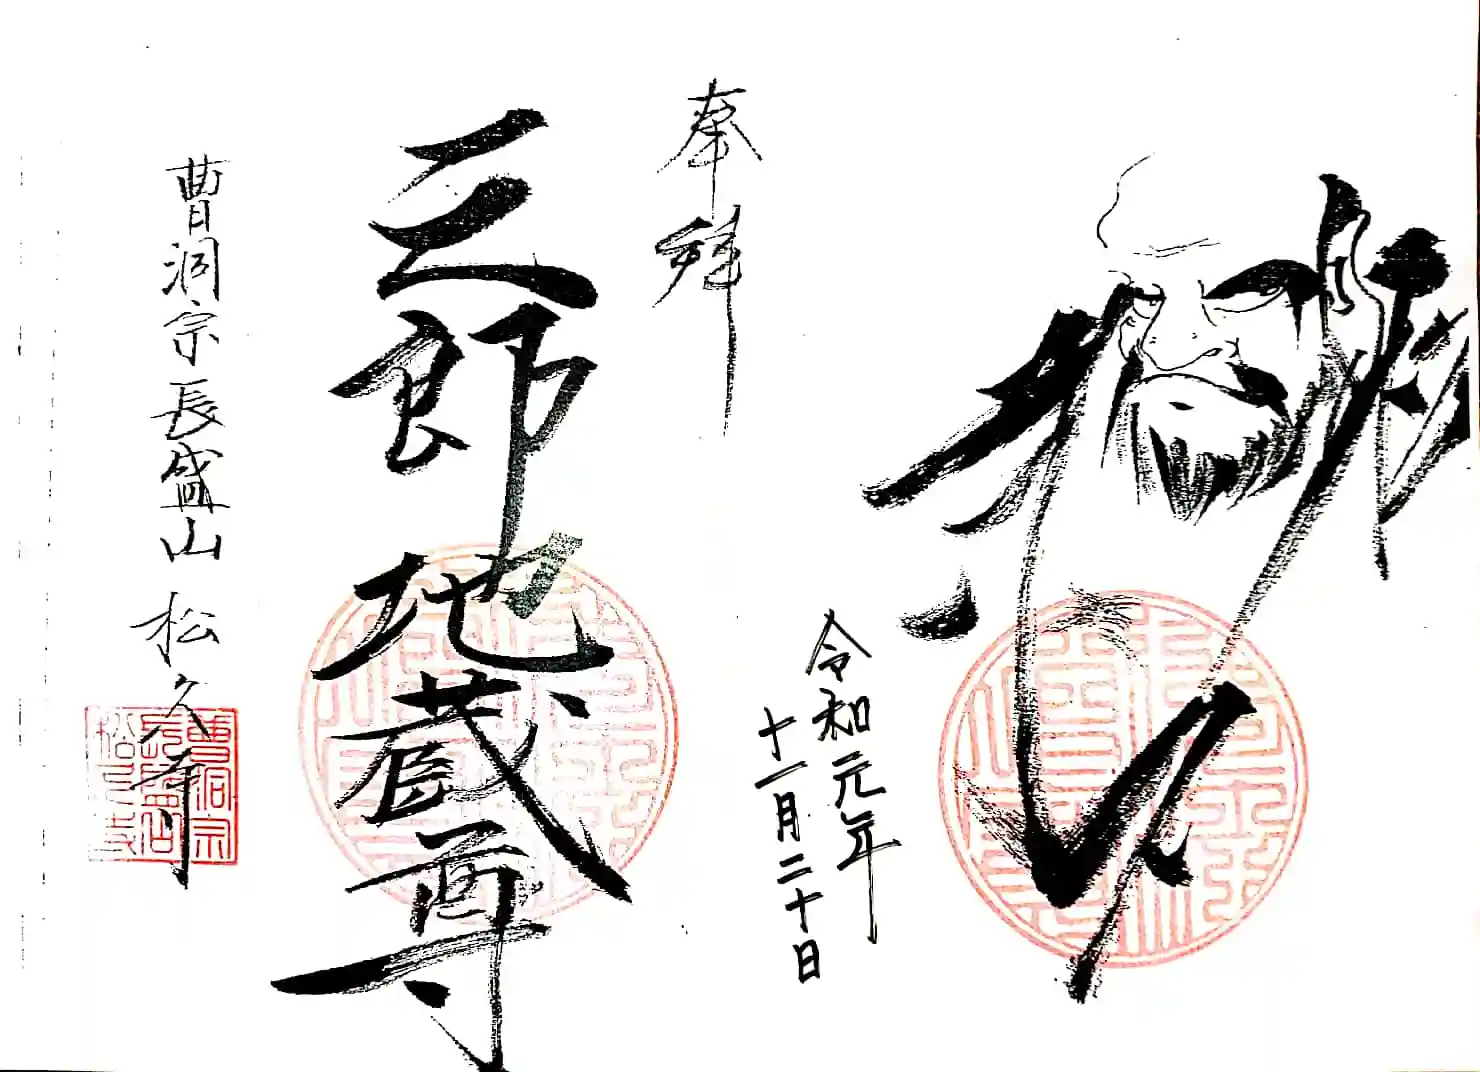 令和元年
十一月二十日
奉拝
三郎地蔵尊
曹洞宗長盛山 松久寺
曹洞宗
長盛山
松久寺